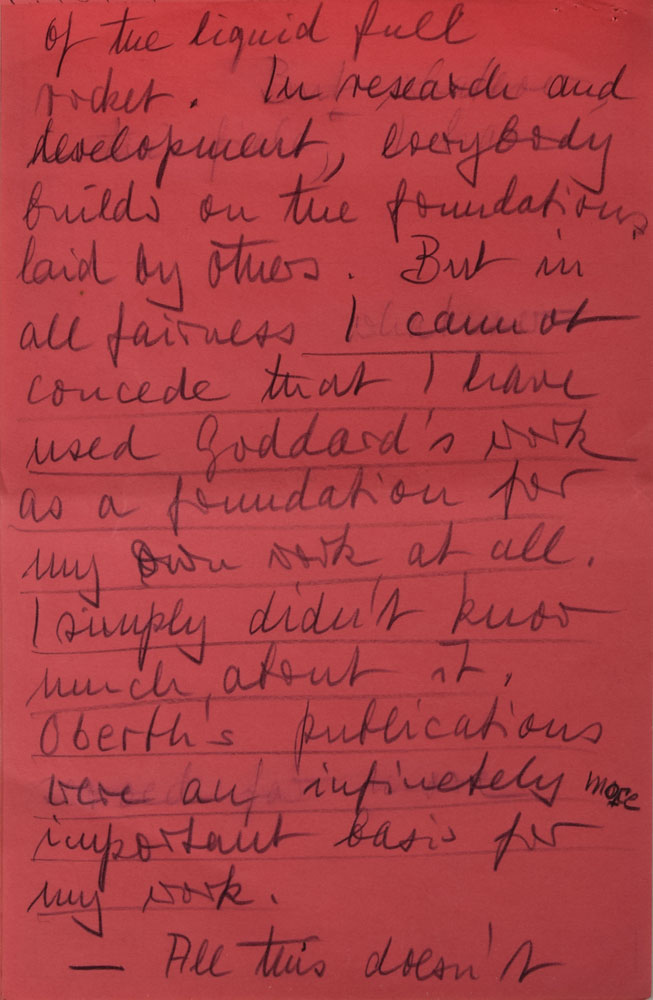 of the liquid full
rocket. In research and
development, everybody
builds on the foundations
laid by others. But in
all fairness I cannot
concede that I have
used Goddard's work
as a foundation for
my own work at all.
I simply didn't know
much about it.
Oberth's publications
were an infinetely more
important basis for
my work.
— All this doesn't